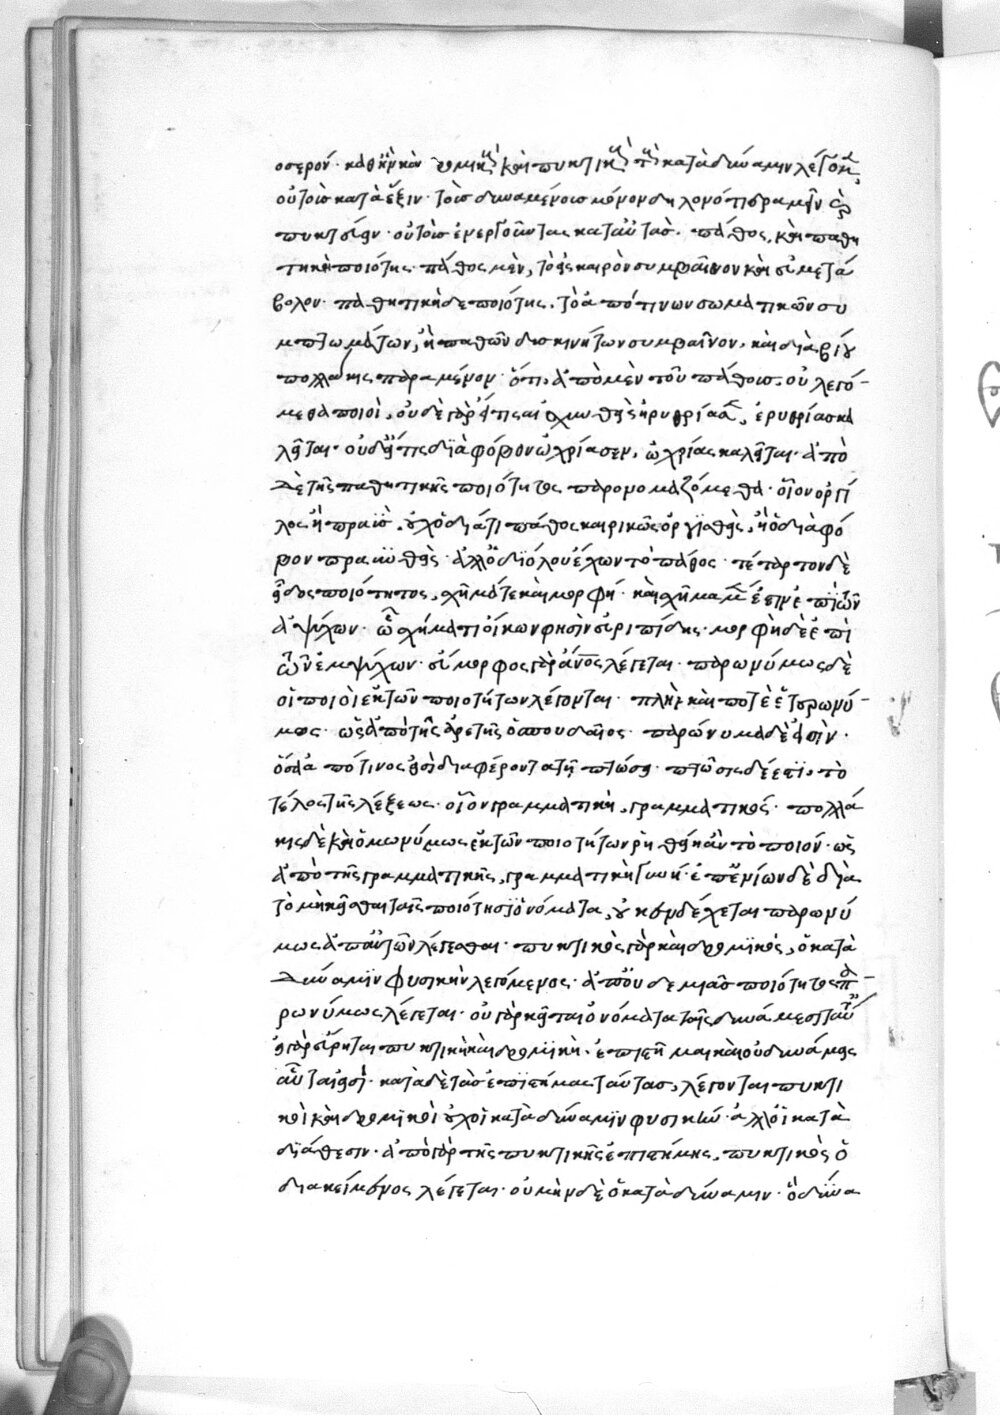 οσερόν· καθ ἣν καὶ δρομικῆς καὶ πυκτικῆς τῆς κατὰ δύναμιν λεγομένης,
οὐ τοῖς κατὰ ἕξιν· τοῖς δυναμένοις μόνον δηλονότι δραμεῖν ἢ
πυκτεύειν· οὐ τοῖς ἐνεργοῦντας κατ αὐτάς· πάθος, καὶ παθη
τικὴ ποιότης· πάθος μὲν, τὸ πρὸς καιρὸν συμβαῖνον καὶ εὐμετά
βολον· παθητικὴ δὲ ποιότης, τὸ ἀπό τινων σωματικῶν συ
μπτωμάτων, ἢ παθῶν δυσκινήτων συμβαῖνον, καὶ διὰ βίου
πολλάκις παραμένον· ὅτι, ἀπὸ μὲν τοῦ πάθους οὐ λεγό-
μεθα ποιοὶ, οὐδὲ γὰρ εἴ τις αἰσχυνθεὶς ἠρυθρίασεν, ἐρυθρίας κα
λεῖται· οὐδ εἴ τις διὰ φόβον ὠχρίασεν, ὠχρίας καλεῖται· ἀπὸ
δὲ τῆς παθητικῆς ποιότητος παρονομαζόμεθα· οἷον ὀργί
λος ἢ πραΰς, οὐχ ὁ διά τι πάθος καιρικῶς ὀργισθεὶς, ἢ ὁ διὰ φό
βον πραϋνθεὶς· ἀλλ ὁ δι ὅλου ἔχων τὸ πάθος· τέταρτον δὲ
εἶδος ποιότητος, σχῆμά τε καὶ μορφή· καὶ σχῆμα μέν ἐστιν ἐπὶ τῶν
ἀψύχων· ὦ σχήματ οἴκων φησὶν εὐριπίδης· μορφὴ δὲ ἐπὶ
τῶν ἐμψύχων· εὔμορφος γὰρ ἄνος λέγεται· παρωνύμως δὲ
οἱ ποιοὶ ἐκ τῶν ποιοτήτων λέγονται· πλὴν καὶ ποτὲ ἑτερωνύ-
μως· ὡς ἀπὸ τῆς ἀρετῆς ὁ σπουδαῖος· παρώνυμα δέ φησιν·
ὅσα ἀπό τινος ἐστὶ διαφέροντα τῇ πτώσει· πτῶσις δέ ἐστι, τὸ
τέλος τῆς λέξεως· οἷον γραμματικὴ, γραμματικός· πολλά
κις δὲ καὶ ὁμωνύμως ἐκ τῶν ποιοτήτων ῥηθείη ἂν τὸ ποιόν· ὡς
ἀπὸ τῆς γραμματικῆς, γραμματικὴ γυνή· ἐπ ἐνίων δὲ διὰ
τὸ μὴ κεῖσθαι ταῖς ποιότησιν ὀνόματα, οὐκ ἐνδέχεται παρωνύ
μως ἀπ αὐτῶν λέγεσθαι· πυκτικὸς γὰρ καὶ δρομικὸς, ὁ κατὰ
δύναμιν φυσικὴν λεγόμενος· ἀπ οὐδεμιᾶς ποιότητος πα-
ρωνύμως λέγεται· οὐ γὰρ κεῖται ὀνόματα ταῖς δυνάμεσι ταύταις
εἰ γὰρ εἴρηται πυκτικὴ καὶ δρομικὴ· ἐπιστῆμαι καὶ οὐ δυνάμεις
αὗταί εἰσί· κατὰ δὲ τὰς ἐπιστήμας ταύτας, λέγονται πυκτι
κοὶ καὶ δρομικοὶ οὐχ οἱ κατὰ δύναμιν φυσικὴν· ἀλλ οἱ κατὰ
διάθεσιν· ἀπὸ γὰρ τῆς πυκτικῆς ἐπιστήμης, πυκτικὸς ὁ
διακείμενος λέγεται· οὐ μὴν δὲ ὁ κατὰ δύναμιν· ὁ δύνα